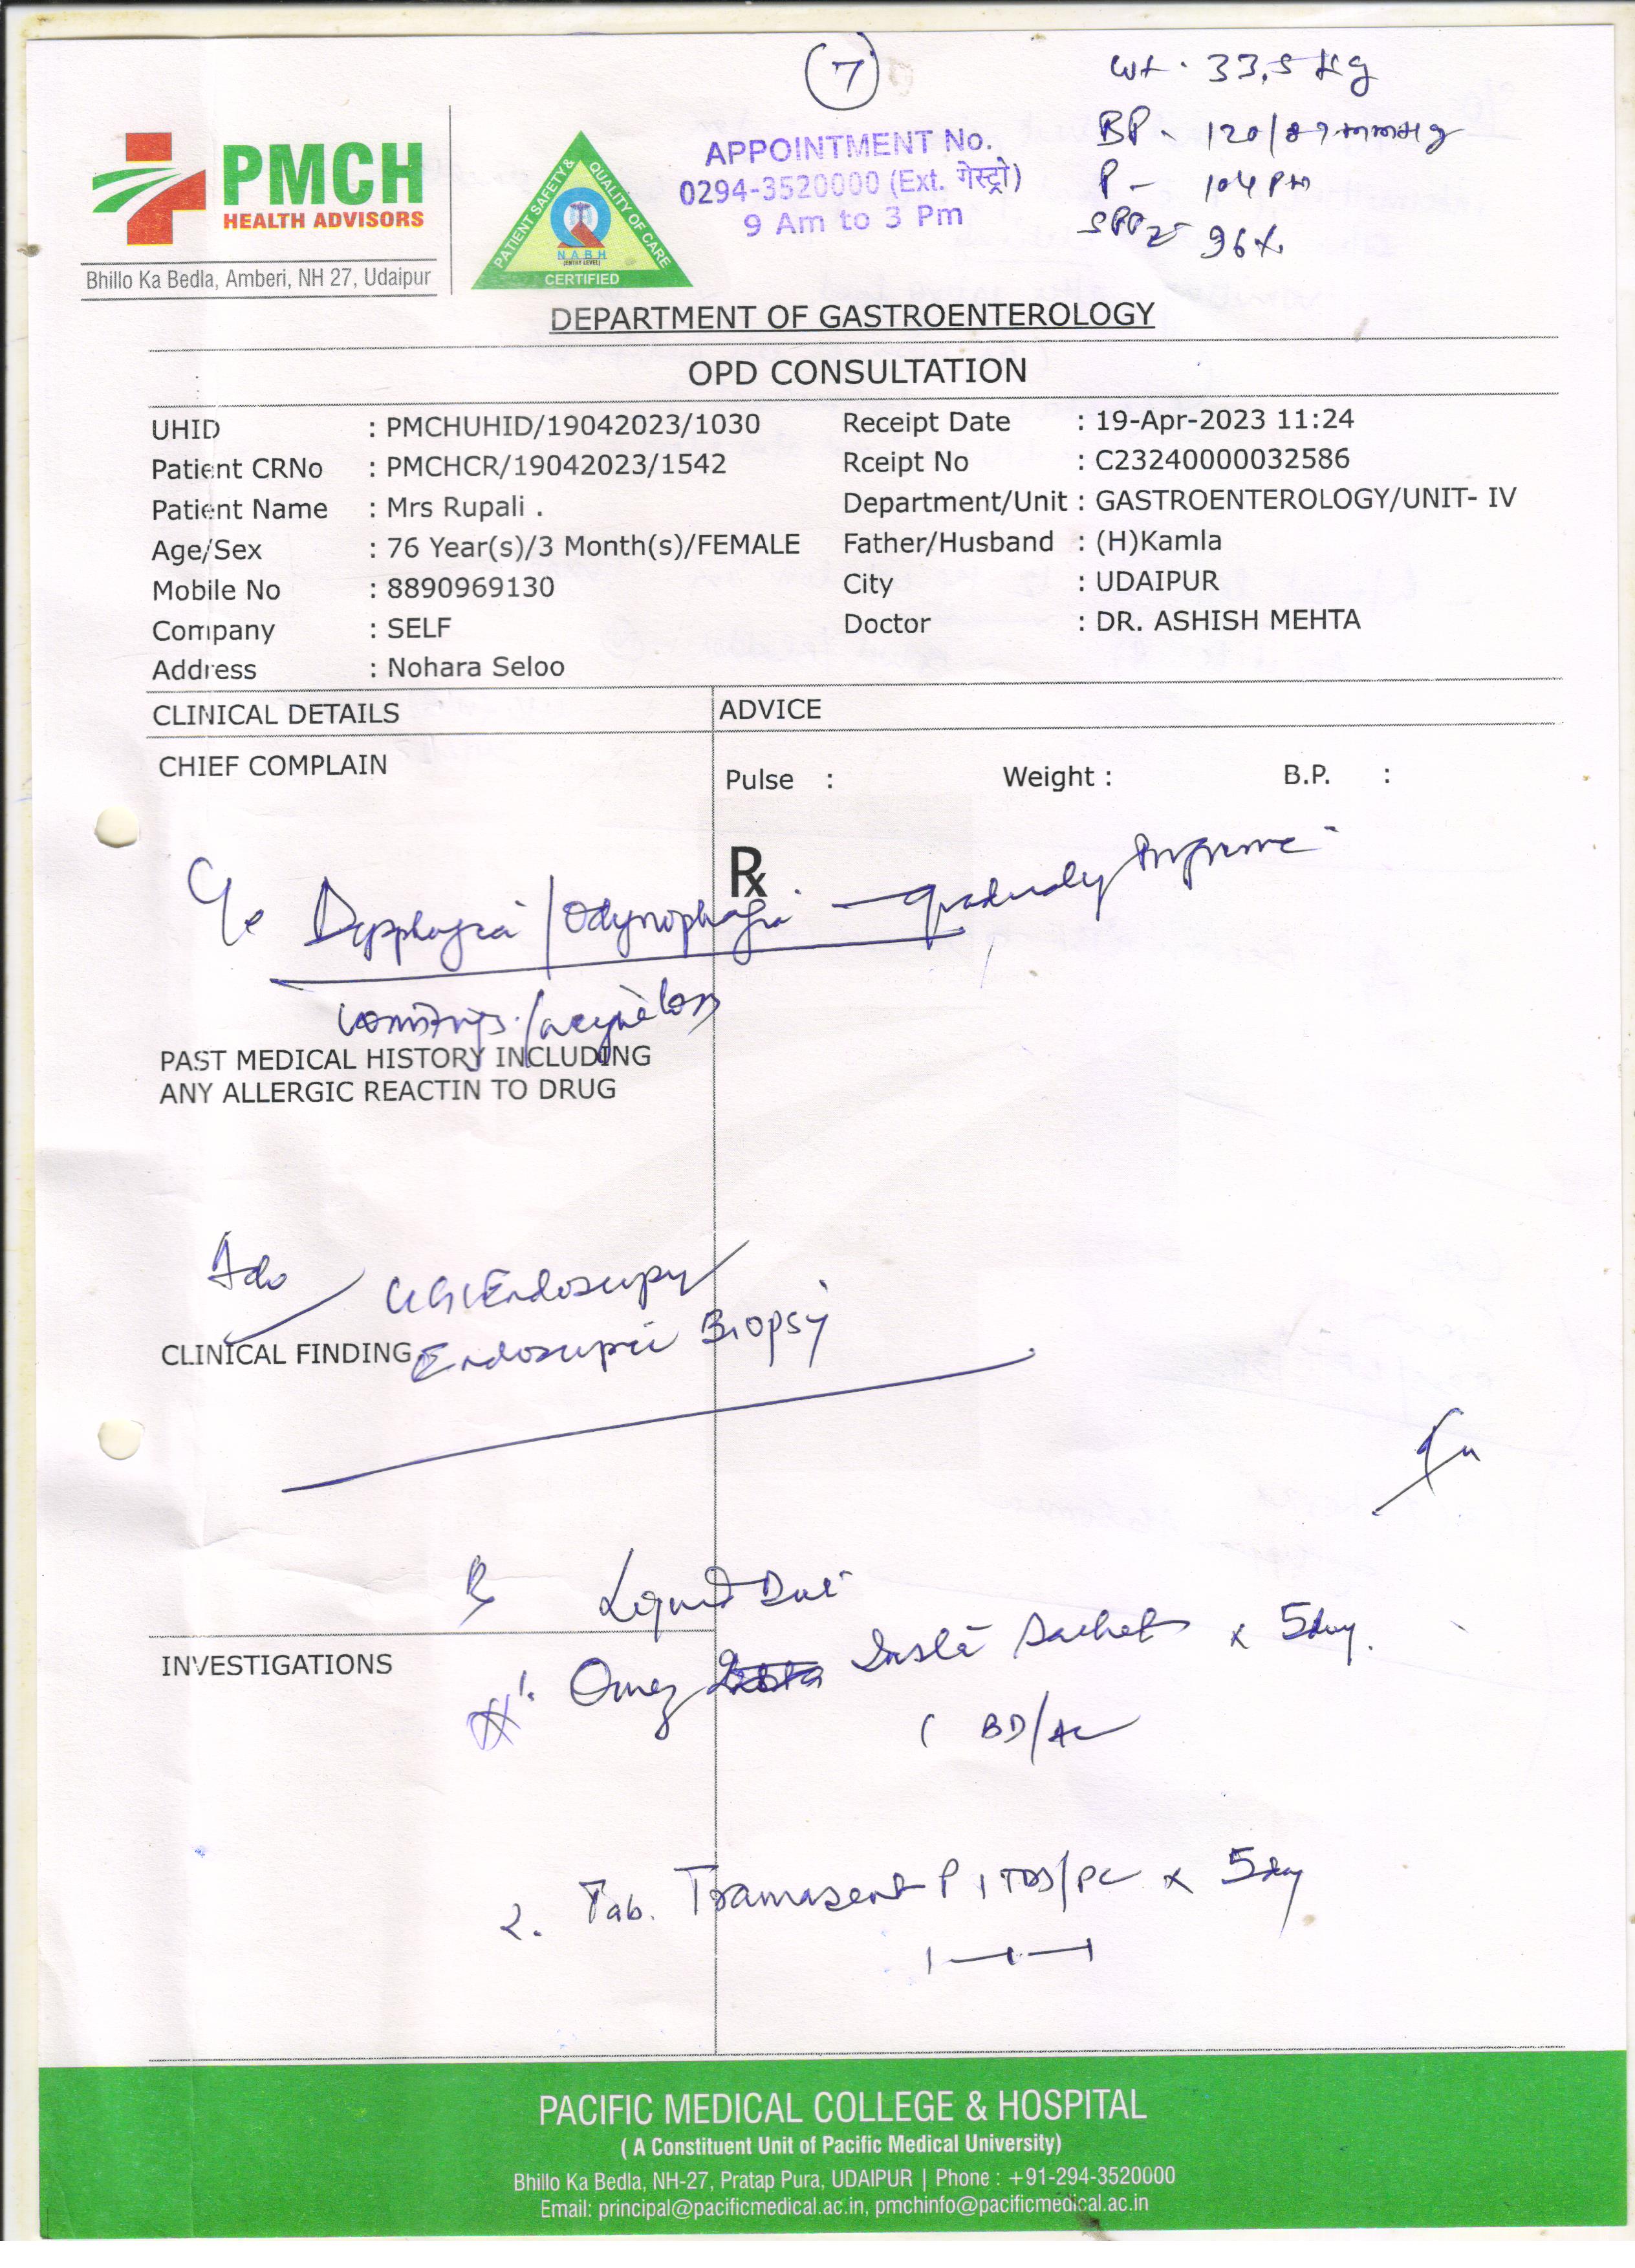 7
Wt. 33.5 Kg
BP - 120/87 mmHg
P - 104 Pm
SPO2 - 96%
PMCH
HEALTH ADVISORS
Bhillo Ka Bedla, Amberi, NH 27, Udaipur
PATIENT SAFETY & QUALITY OF CARE
NABH
(ENTRY LEVEL)
CERTIFIED
APPOINTMENT No.
0294-3520000 (Ext. गेस्ट्रो)
9 Am to 3 Pm
DEPARTMENT OF GASTROENTEROLOGY
OPD CONSULTATION
UHID : PMCHUHID/19042023/1030 Receipt Date : 19-Apr-2023 11:24
Patient CRNo : PMCHCR/19042023/1542 Rceipt No : C23240000032586
Patient Name : Mrs Rupali . Department/Unit : GASTROENTEROLOGY/UNIT- IV
Age/Sex : 76 Year(s)/3 Month(s)/FEMALE Father/Husband : (H)Kamla
Mobile No : 8890969130 City : UDAIPUR
Company : SELF Doctor : DR. ASHISH MEHTA
Address : Nohara Seloo
CLINICAL DETAILS ADVICE
CHIEF COMPLAIN
Pulse : Weight : B.P. :
Rx
C/o Dysphagia / Odynophagia - gradually
vomitings / weight loss
PAST MEDICAL HISTORY INCLUDING
ANY ALLERGIC REACTIN TO DRUG
Adv UGI Endoscopy
Endoscopic Biopsy
CLINICAL FINDING
Rx Liquid Diet
INVESTIGATIONS
1. Omez Insta Sachet x 5day.
( BD/AC
2. Tab. Tramasent P 1 TDS/PC x 5day
1-1-1
PACIFIC MEDICAL COLLEGE & HOSPITAL
( A Constituent Unit of Pacific Medical University)
Bhillo Ka Bedla, NH-27, Pratap Pura, UDAIPUR | Phone : +91-294-3520000
Email: principal@pacificmedical.ac.in, pmchinfo@pacificmedical.ac.in